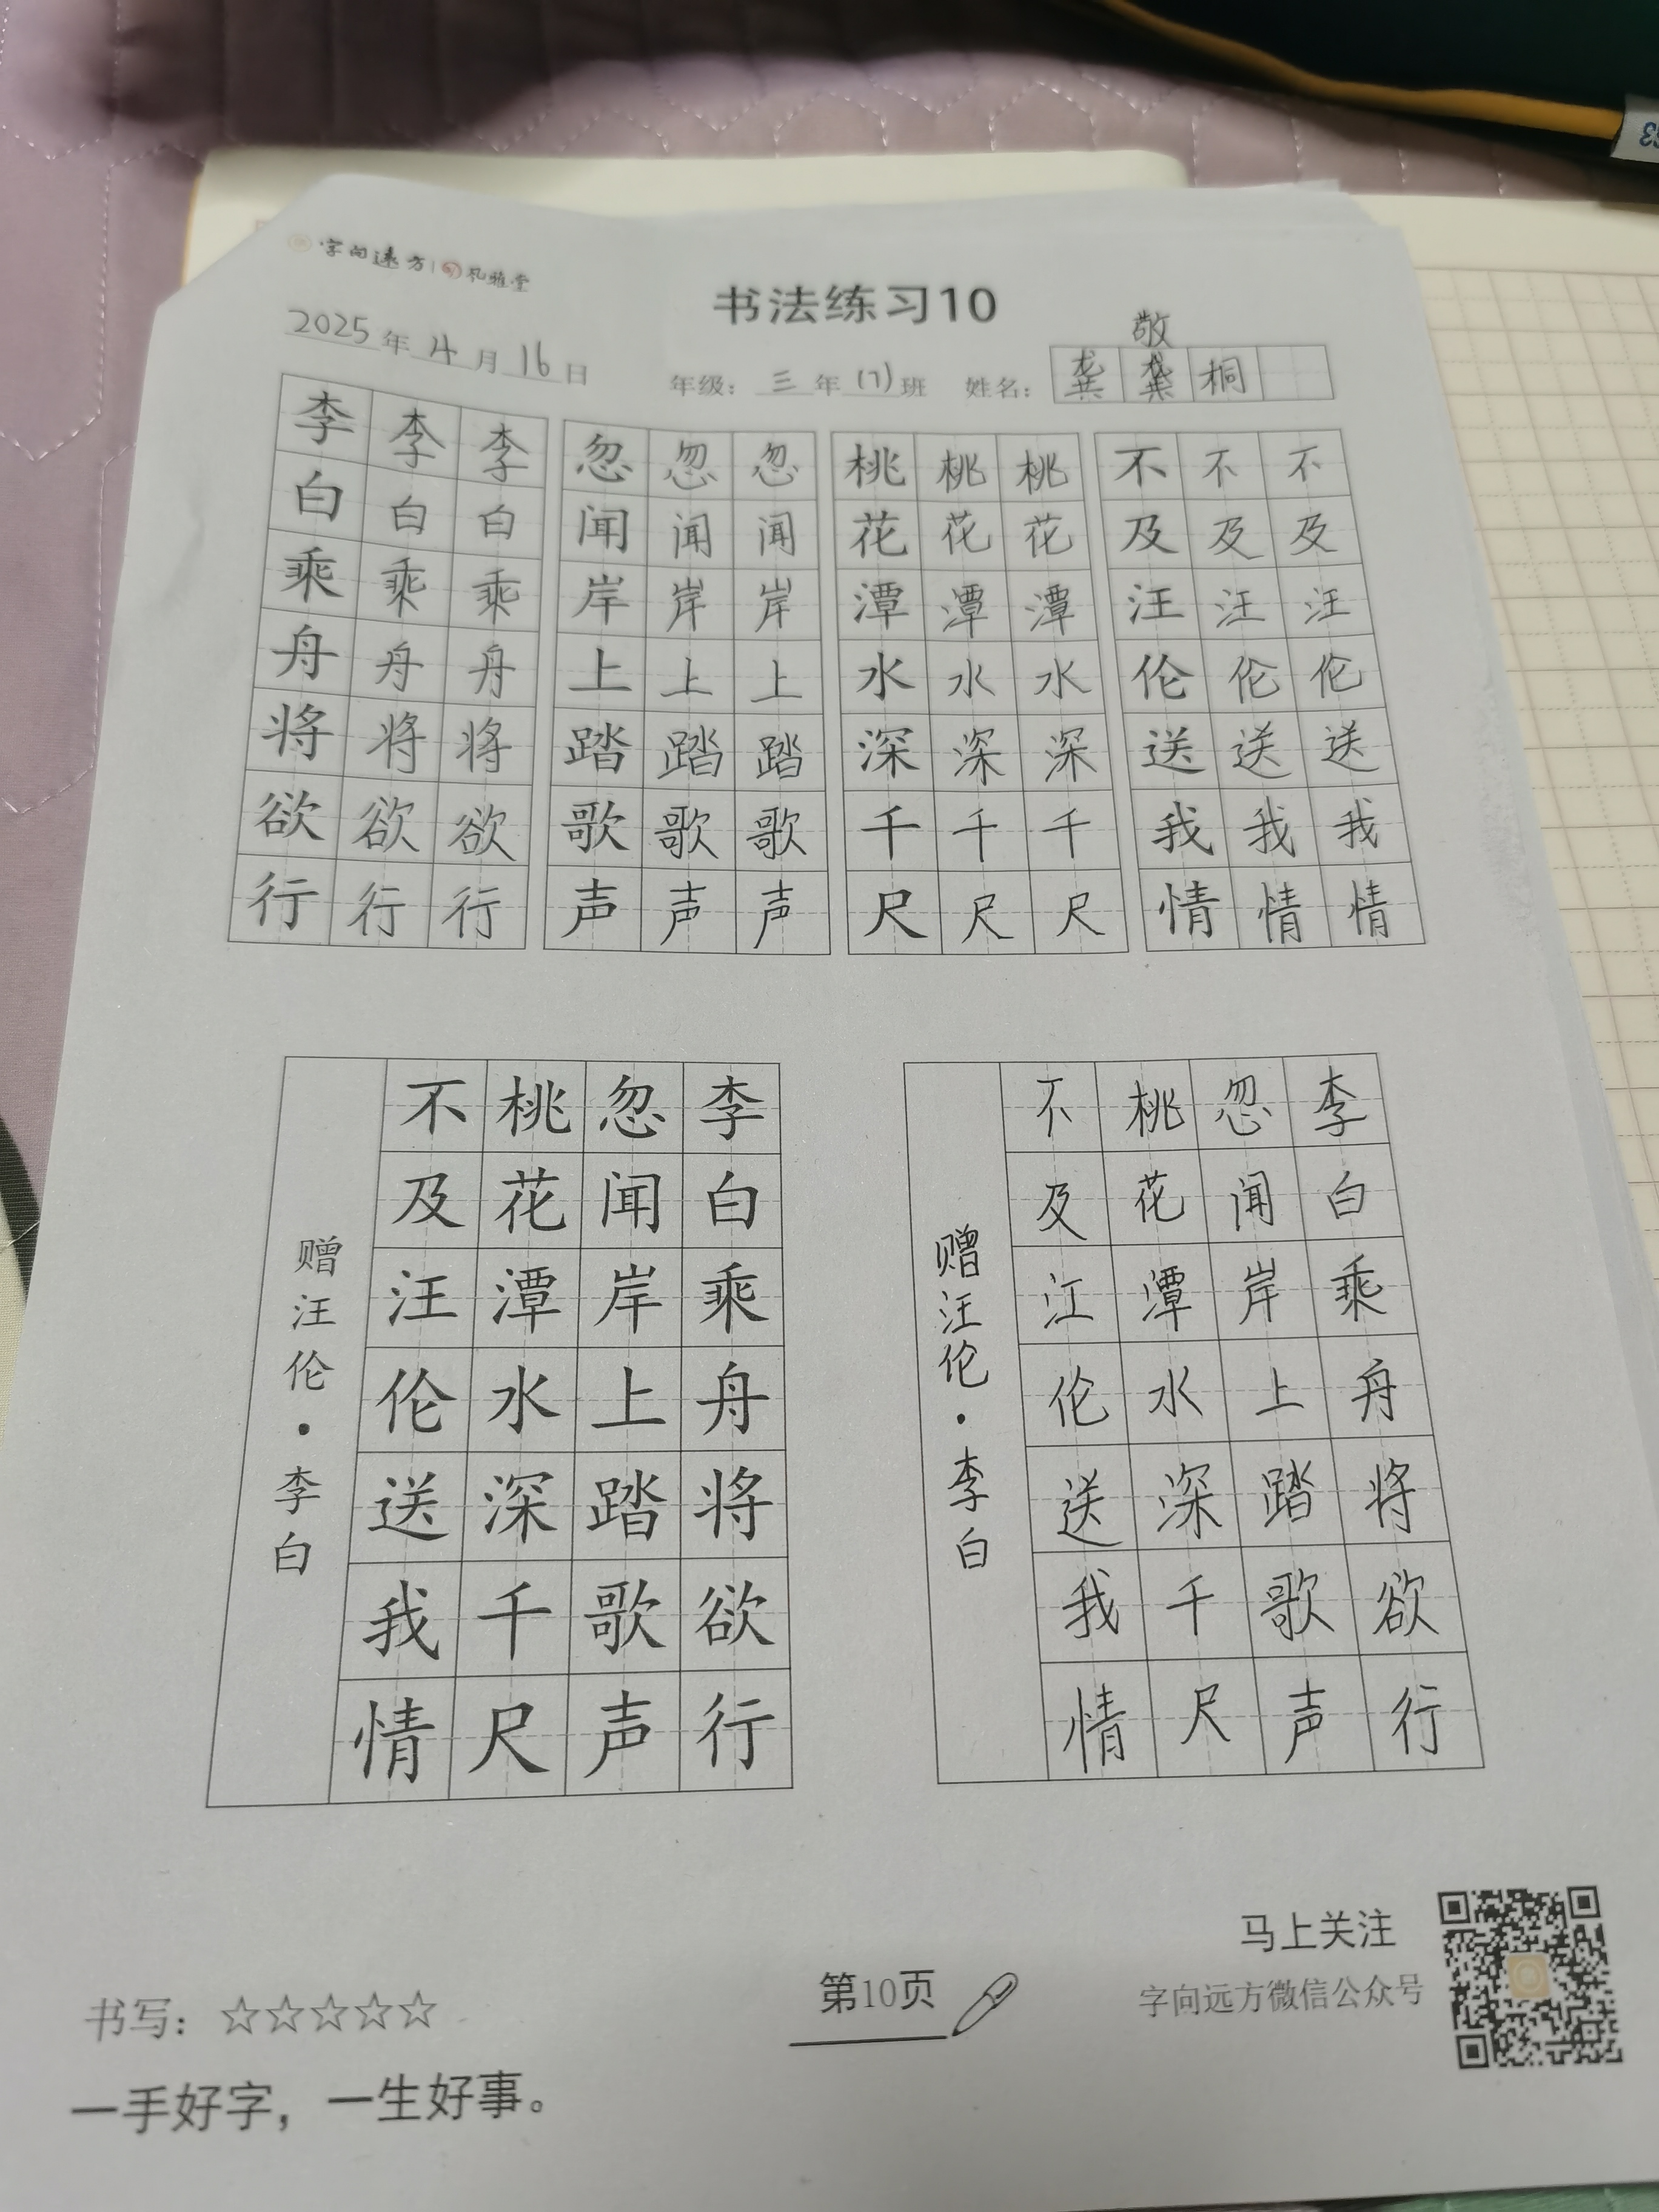 字向远方 孔雅堂
书法练习10
敬
2025年4月16日 年级：三年(7)班 姓名：龚龚桐
李李李 忽忽忽 桃桃桃 不不不
白白白 闻闻闻 花花花 及及及
乘乘乘 岸岸岸 潭潭潭 汪汪汪
舟舟舟 上上上 水水水 伦伦伦
将将将 踏踏踏 深深深 送送送
欲欲欲 歌歌歌 千千千 我我我
行行行 声声声 尺尺尺 情情情
李白乘舟将欲行
忽闻岸上踏歌声
桃花潭水深千尺
不及汪伦送我情
赠汪伦·李白
李白乘舟将欲行
忽闻岸上踏歌声
桃花潭水深千尺
不及江伦送我情
赠汪伦·李白
书写：☆☆☆☆☆
一手好字，一生好事。
第10页
马上关注
字向远方微信公众号